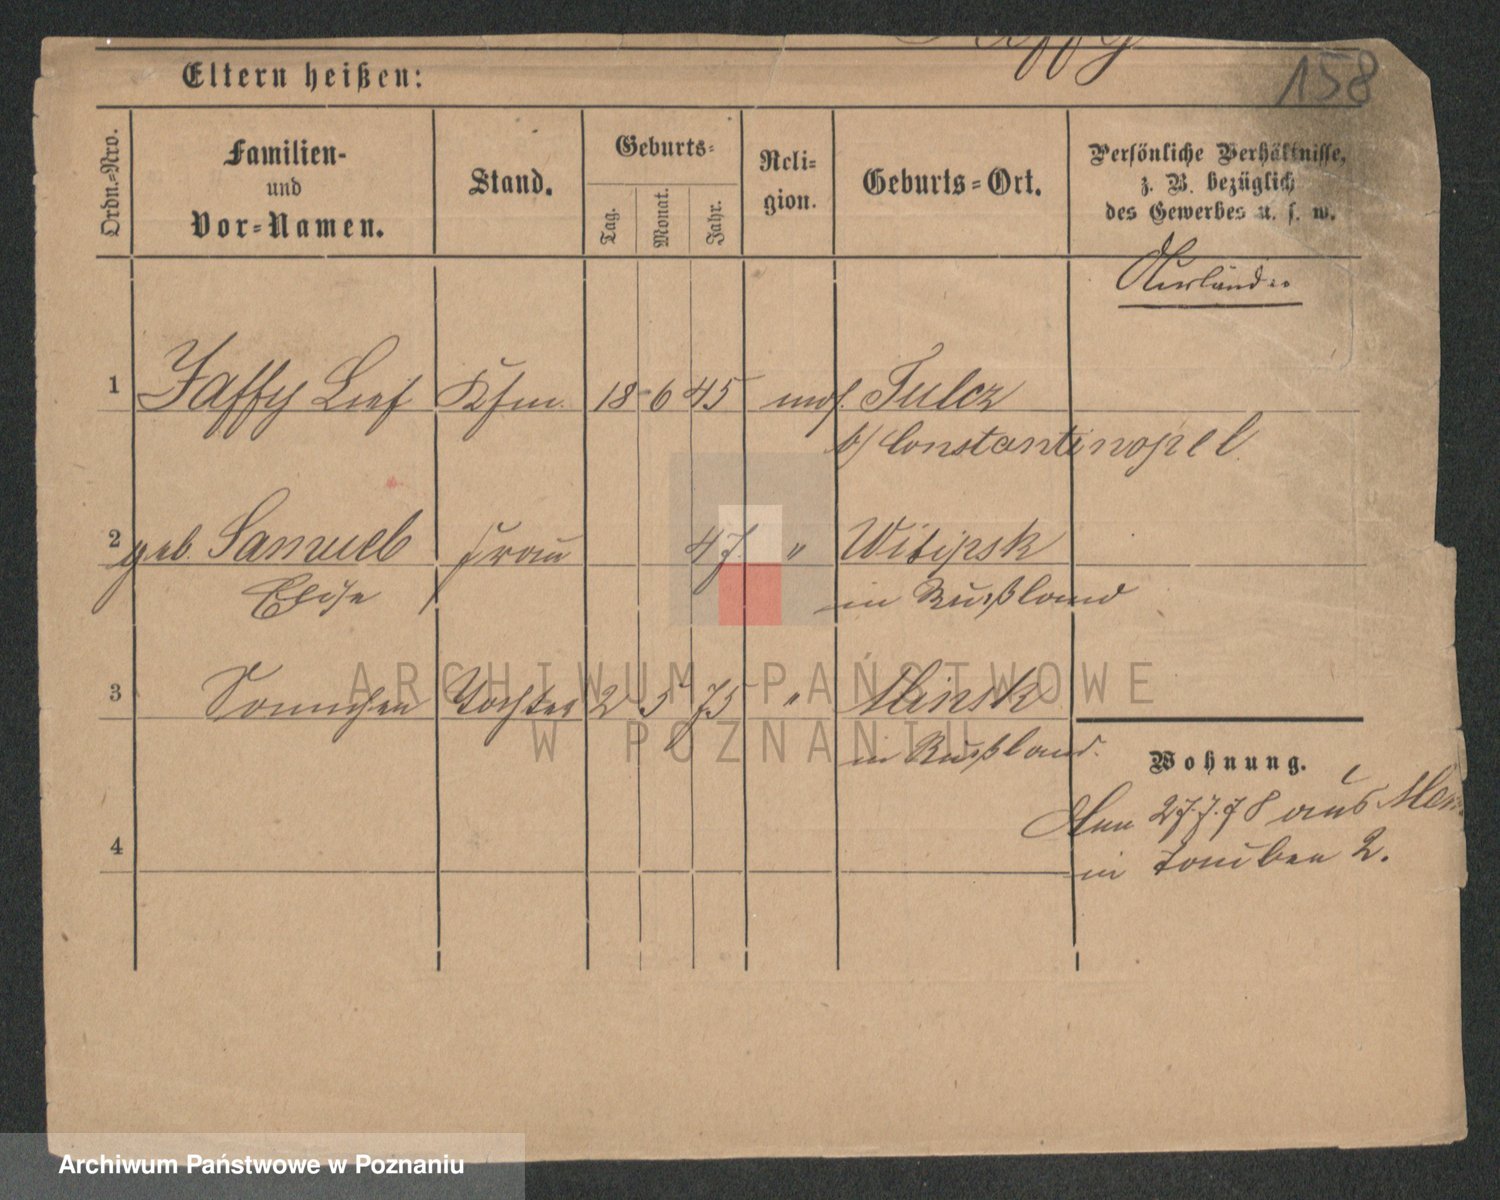 158
Eltern heißen:
Ordn.-Nro.
Familien-
und
Vor-Namen.
Stand.
Geburts-
Tag.
Monat.
Jahr.
Reli-
gion.
Geburts-Ort.
Persönliche Verhältnisse,
z. B. bezüglich
des Gewerbes u. s. w.
Ausländer
1 Jaffy Lief Kfm. 18 6 45 mos. Tulcz
b/ Constantinopel.
2 geb. Samueb Frau 47. " Witipsk
Elise in Rußland
3 Tochter 2 5 75 " Minsk
in Rußland.
Wohnung.
27.7.78 aus
4
in Tauben 2.
ARCHIWUM PAŃSTWOWE
W POZNANIU
Archiwum Państwowe w Poznaniu